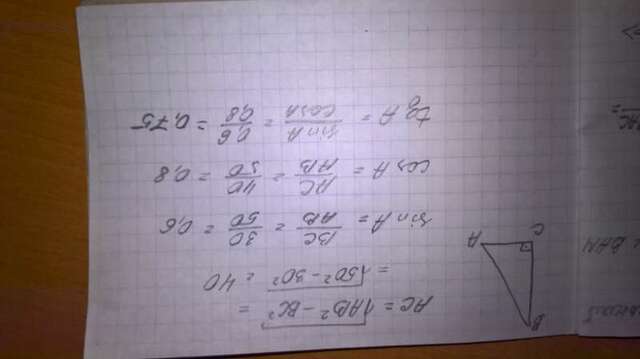 B
C
A
AC = √AB² - BC² =
= √50² - 30² = 40
sin A = BC/AB = 30/50 = 0,6
cos A = AC/AB = 40/50 = 0,8
tg A = sin A/cos A = 0,6/0,8 = 0,75
BAH
AC
=
=>